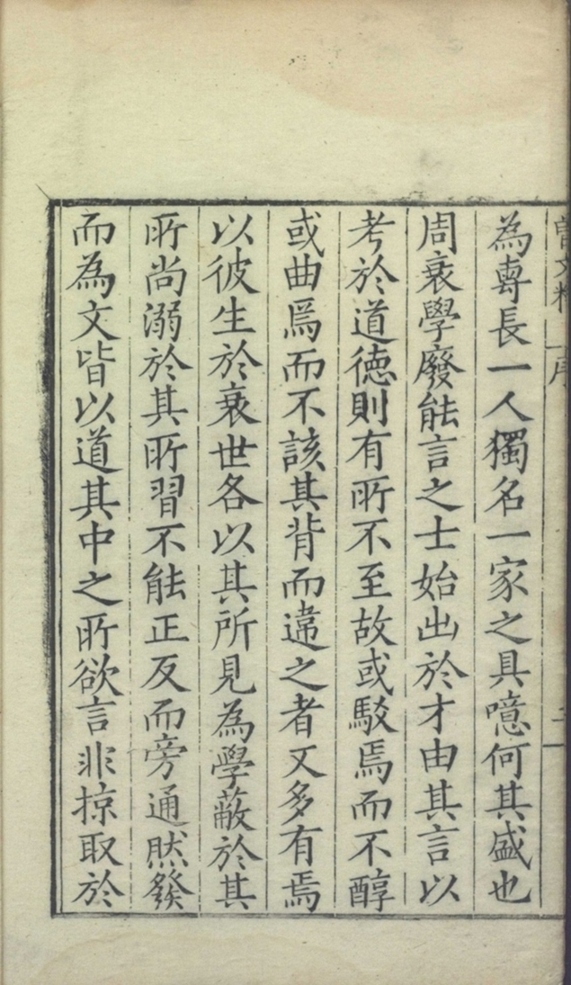 曾文粹 序 二
為專長一人獨名一家之具噫何其盛也
周衰學廢能言之士始出於才由其言以
考於道德則有所不至故或駁焉而不醇
或曲焉而不該其背而違之者又多有焉
以彼生於衰世各以其所見為學蔽於其
所尚溺於其所習不能正反而旁通然發
而為文皆以道其中之所欲言非掠取於